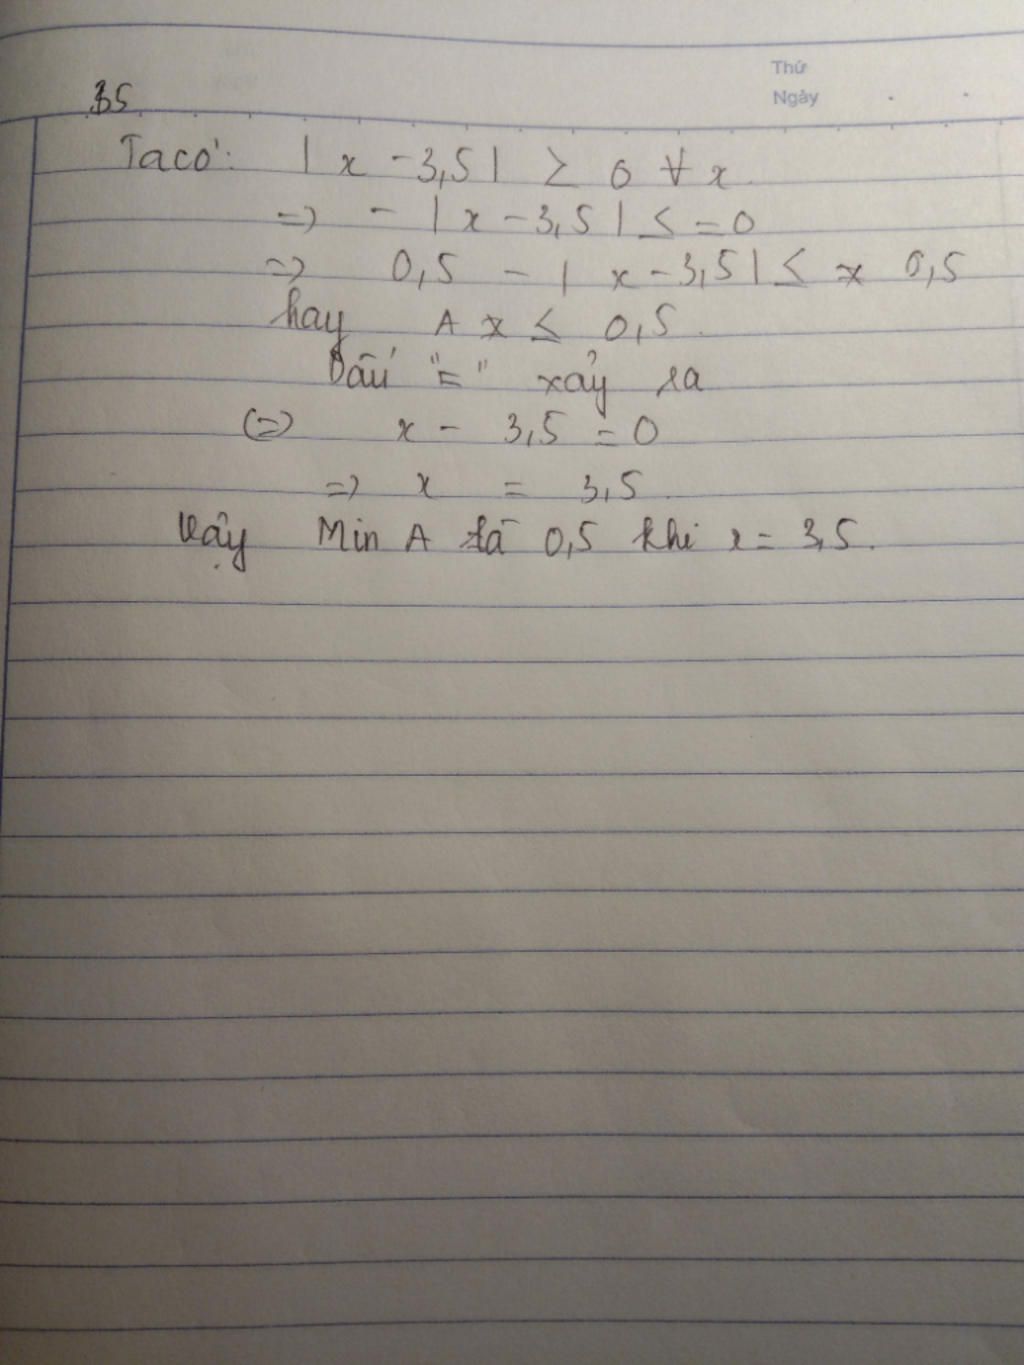 Thứ
Ngày
35
Ta có: |x - 3,5| ≥ 0 ∀ x
=> - |x - 3,5| ≤ = 0
=> 0,5 - |x - 3,5| ≤ 0,5
hay A ≤ 0,5.
Dấu "=" xảy ra
(=> x - 3,5 = 0
=> x = 3,5
Vậy Min A là 0,5 khi x = 3,5.